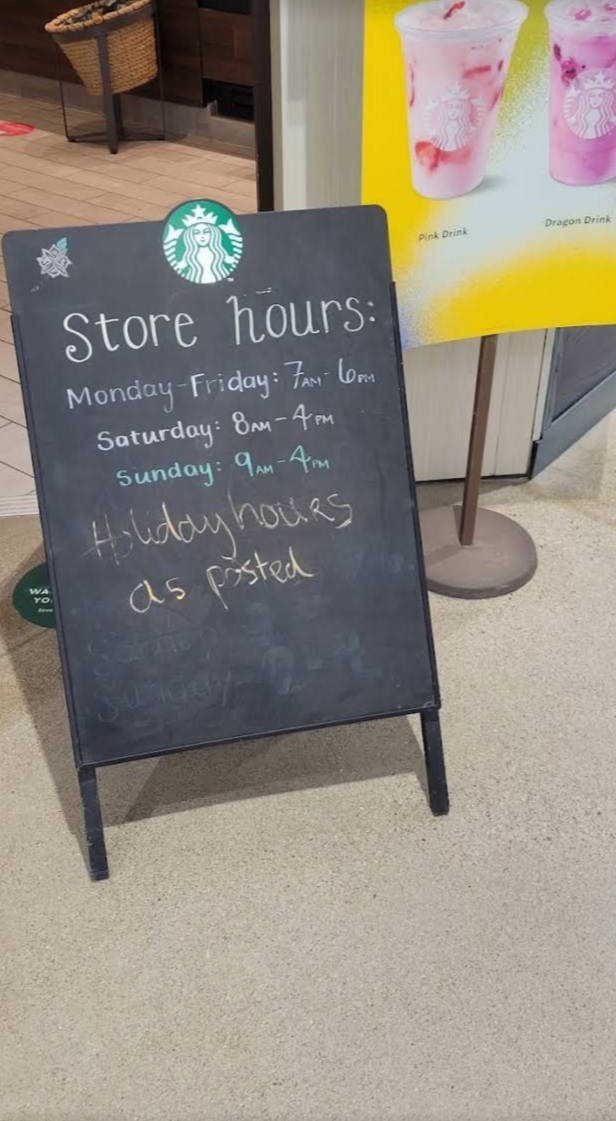 Pink Drink
Dragon Drink
Store hours:
Monday-Friday: 7AM-6PM
Saturday: 8AM-4PM
Sunday: 9AM-4PM
Holiday hours
as posted